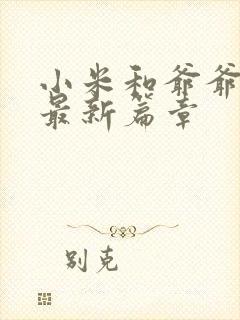 小米和爷爷
最新篇章
别克